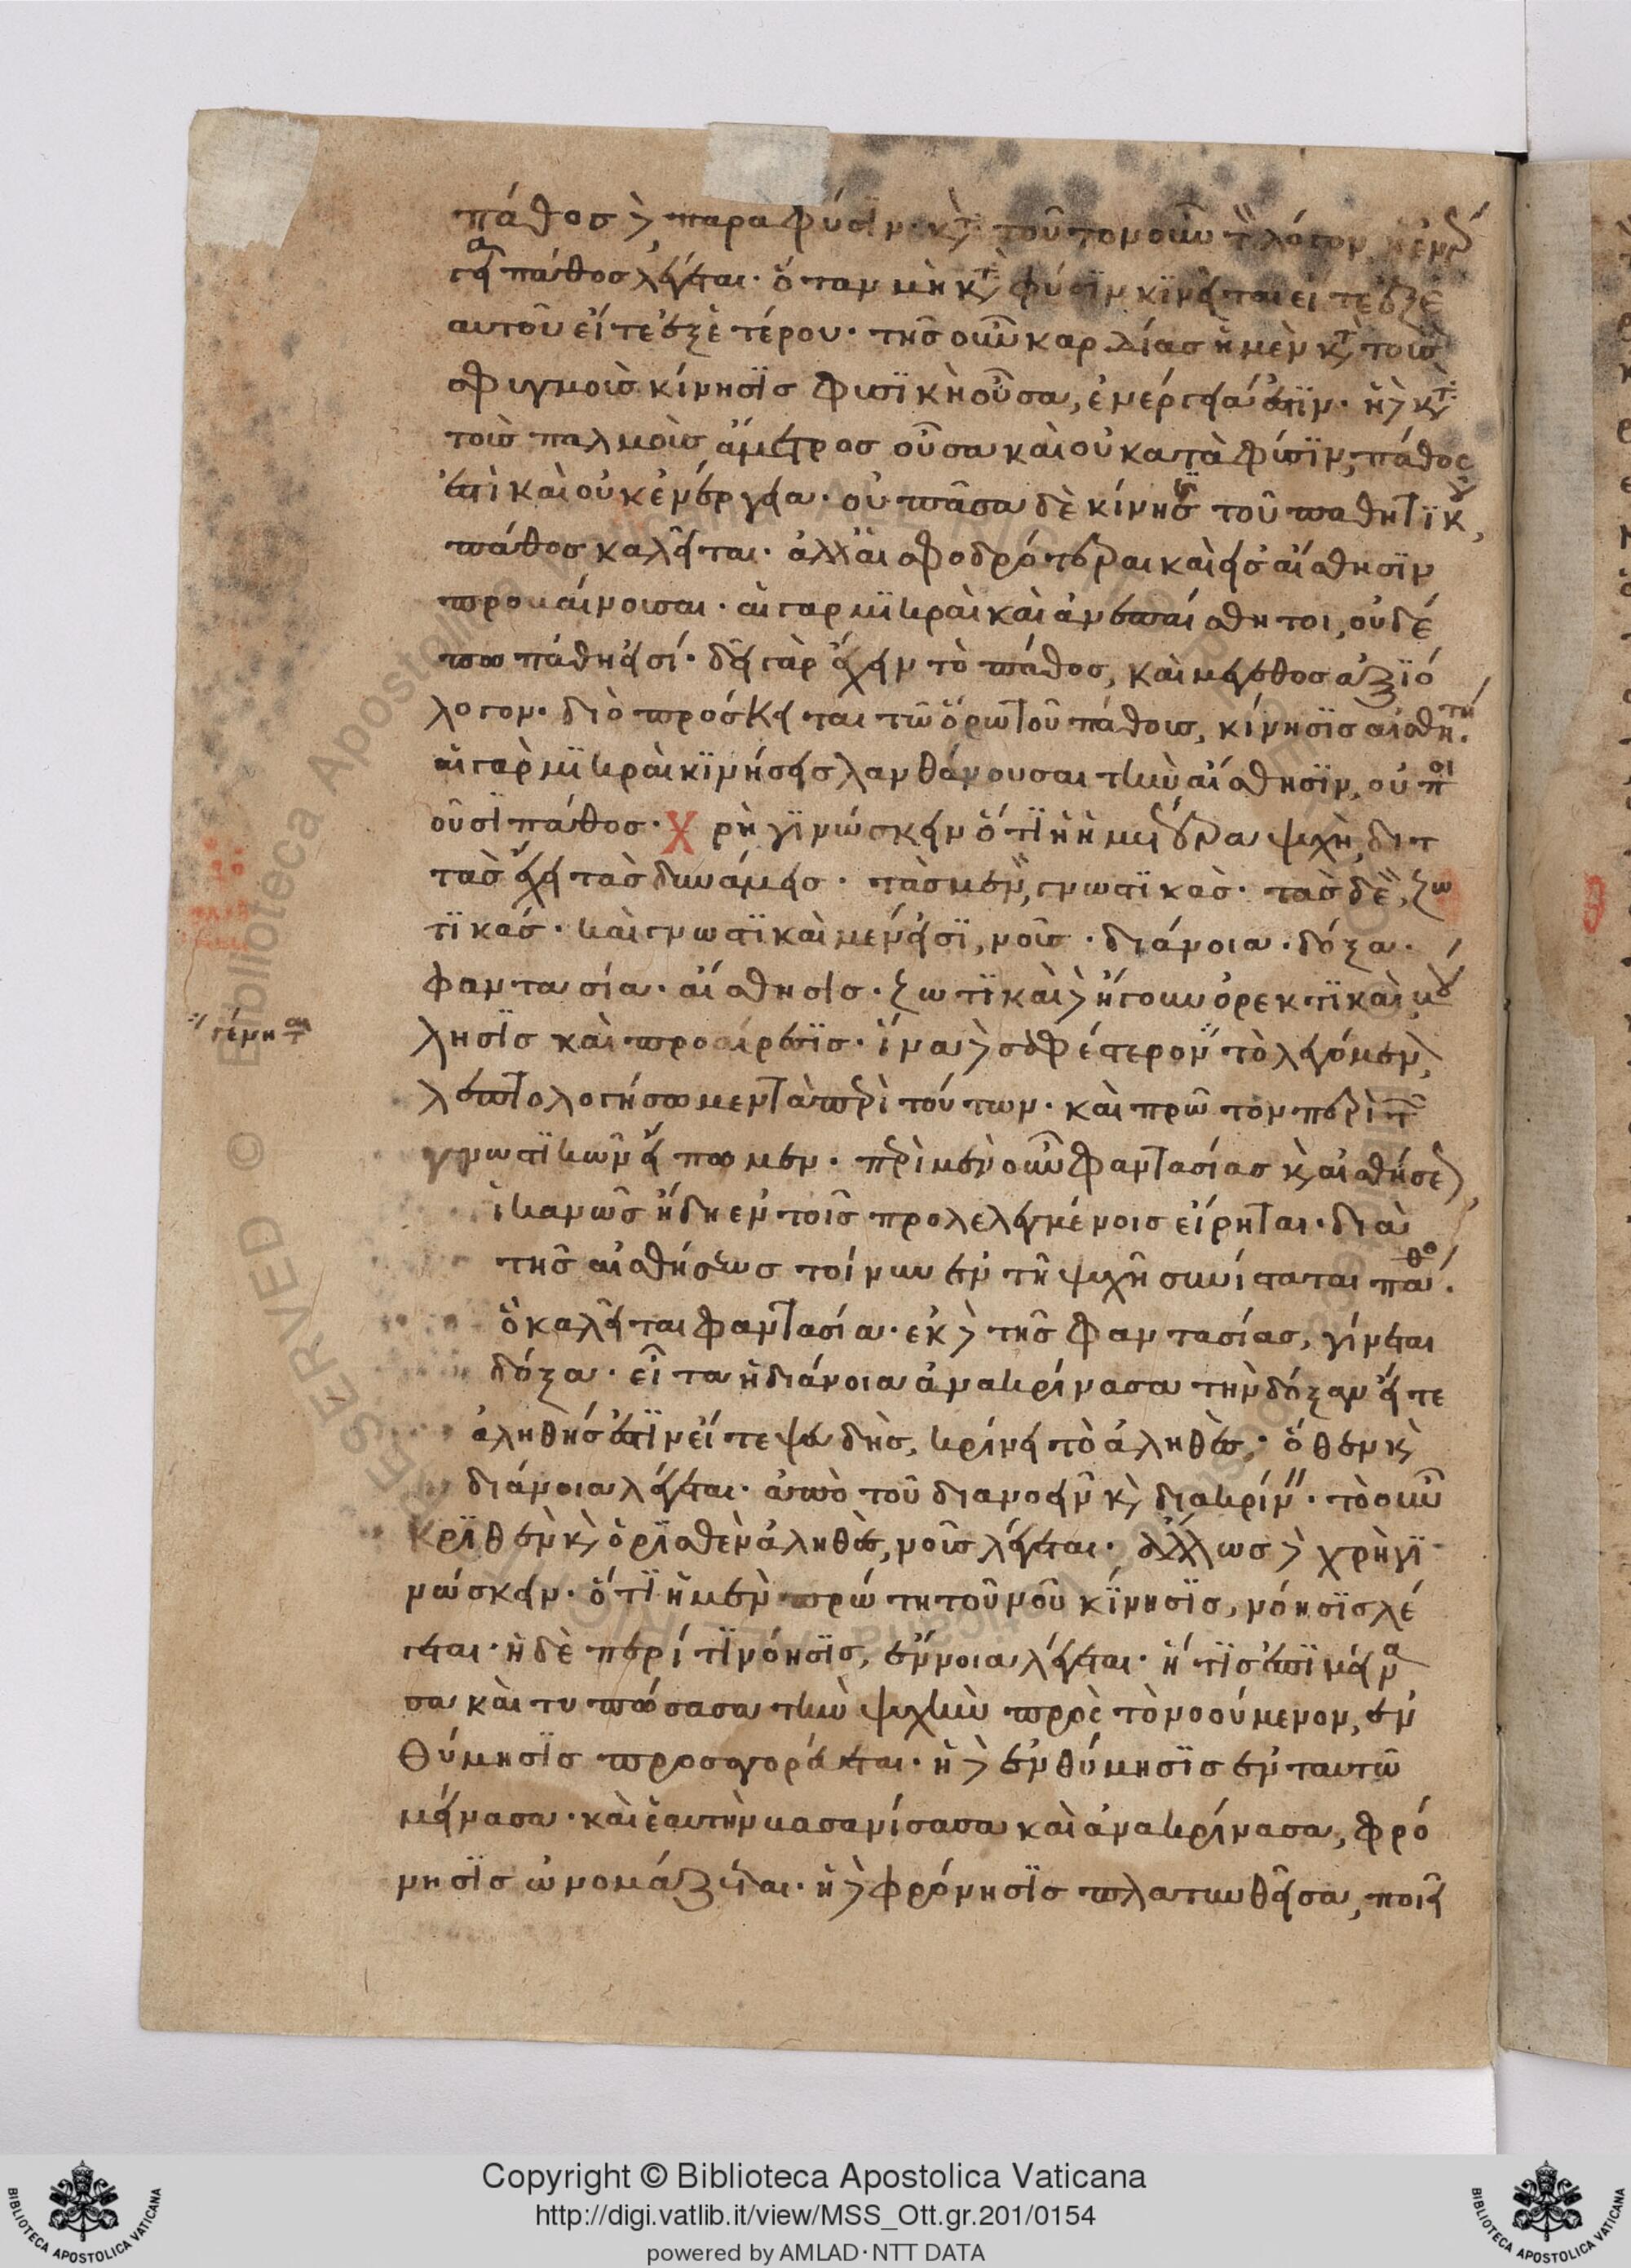 πάθος δὲ παρα φύσϊν· κατὰ τοῦτον οὖν τὸν λόγον, ἡ ἐνέρ
γεια πάθος λέγεται· ὅταν μὴ κατὰ φύσϊν κϊνεῖται εἴ τε ἐξ ἑ
αυτοῦ εἴτε ἐξ ἑτέρου· τῆς οὖν καρδίας ἡ μὲν κατὰ τοὺς
σφυγμοὺς κίνησϊς φυσϊκὴ οὖσα, ἐνέργειά ἐστϊν· ἡ δὲ κατὰ
τοὺς παλμοὺς ἄμετρος οὖσα καὶ οὐ κατὰ φύσϊν, πάθος
ἐστὶ καὶ οὐκ ἐνέργεια· οὐ πᾶσα δὲ κίνησις τοῦ παθητϊκοῦ,
πάθος καλεῖται· ἀλλ' αἱ σφοδρότεραι καὶ εἰς αἴσθησϊν
προβαίνουσαι· αἱ γαρ μϊκραὶ καὶ ἀνεπαίσθητοι, οὐδέ
πω πάθη εἰσί· δεῖ γὰρ ἔχειν τὸ πάθος, καὶ μέγεθος ἀξϊό
λογον· διὸ πρόσκειται τῶ ὅρω τοῦ πάθους, κίνησϊς αἰσθητή·
αἱ γαρ μϊκραὶ κϊνήσεις λανθάνουσαι τὴν αἴσθησϊν, οὐ ποι
οῦσϊ πάθος· Χρὴ γϊνώσκειν ὅτϊ ἡ ἡμετέρα ψυχὴ, διτ
τὰς ἔχει τὰς δυνάμεις· τὰς μὲν, γνωστϊκὰς· τὰς δὲ, ζω
τϊκάς· καὶ γνωστϊκαὶ μέν εἰσϊ, νοῦς· διάνοια· δόξα·
φαντασία· αἴσθησϊς· ζωτϊκαὶ δὲ ἤγουν ὀρεκτϊκαὶ, βού
λησϊς καὶ προαίρεσϊς· ἵνα δὲ σαφέστερον τὸ λεγόμενον,
λεπτολογήσωμεν τὰ περὶ τούτων· καὶ πρῶτον περὶ τῶν
γνωστϊκῶν εἴπωμεν· περὶ μὲν οὖν φαντασίας καὶ αἰσθήσεως,
ἱκανῶς ἤδη ἐν τοῖς προλελεγμένοις εἴρηται· διὰ
τῆς αἰσθήσεως τοίνυν ἐν τῇ ψυχῇ συνίσταται πάθος·
ὃ καλεῖται φαντασία· ἐκ δὲ τῆς φαντασίας, γίνεται
δόξα· εἶτα ἡ διάνοια ἀνακρίνασα τὴν δόξαν εἴτε
ἀληθής ἐστϊν εἴτε ψευδὴς, κρίνει τὸ ἀληθὲς· ὅθεν καὶ
διάνοια λέγεται· ἀπὸ τοῦ διανοεῖν καὶ διακρίνειν· τὸ οὖν
κρϊθὲν καὶ ὁρϊσθὲν ἀληθὲς, νοῦς λέγεται· ἄλλως δὲ χρὴ γϊ
νώσκειν· ὅτϊ ἡ μὲν πρώτη τοῦ νοῦ κίνησϊς, νόησϊς λέ
γεται· ἡ δὲ περί τϊ νόησϊς, ἔννοια λέγεται· ἥτϊς ἐπϊμείνα
σα καὶ τυπώσασα τὴν ψυχὴν πρὸς τὸ νοούμενον, ἐν
θύμησϊς προσαγορεύεται· ἡ δὲ ἐνθύμησϊς ἐν ταυτῶ
μείνασα· καὶ ἑαυτὴν βασανίσασα καὶ ἀνακρίνασα, φρό
νησϊς ὠνομάζεται· ἡ δὲ φρόνησϊς πλατυνθεῖσα, ποιεῖ
Copyright © Biblioteca Apostolica Vaticana
http://digi.vatlib.it/view/MSS_Ott.gr.201/0154
powered by AMLAD·NTT DATA
BIBLIOTECA APOSTOLICA VATICANA
BIBLIOTECA APOSTOLICA VATICANA